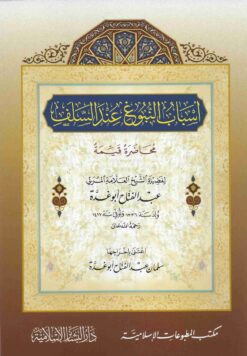 أسباب النبوغ عند السلف
محاضرة قيمة
لفضيلة الشيخ العلامة المربي
عبد الفتاح أبو غدة
ولد سنة ١٣٣٦ وتوفي سنة ١٤١٧
رحمه الله تعالى
اعتنى بإخراجها
سلمان بن عبد الفتاح أبو غدة
مكتب المطبوعات الإسلامية
دار البشائر الإسلامية